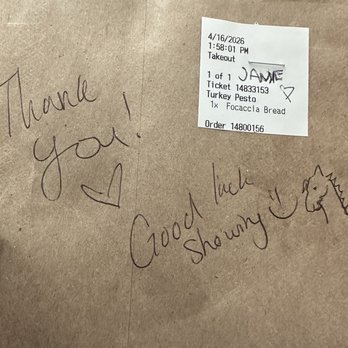 4/16/2026
1:58:01 PM
Takeout
1 of 1 JAMIE
Ticket 14833153
Turkey Pesto
1x Focaccia Bread
Order 14800156
Thank
you!
Good luck
showing